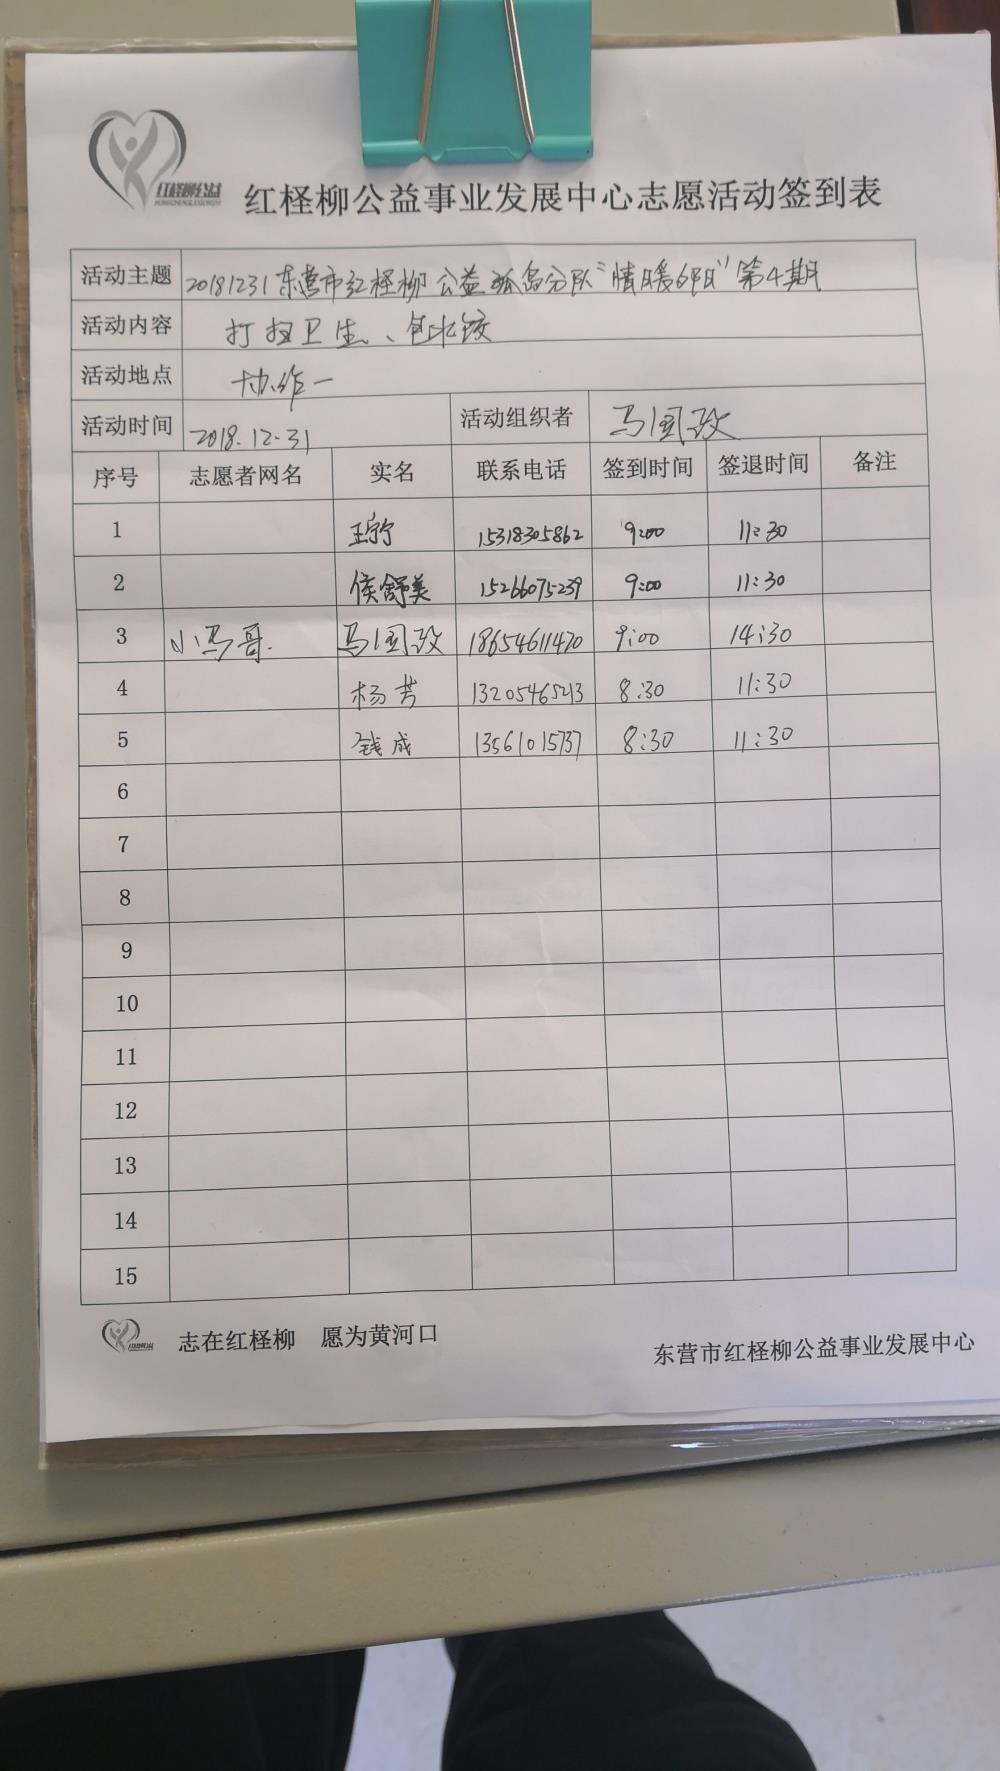 红柽柳公益
红柽柳公益事业发展中心志愿活动签到表
活动主题 20181231东营市红柽柳公益孤岛分队“情暖夕阳”第4期
活动内容 打扫卫生、包水饺
活动地点 协作一
活动时间 2018.12.31 活动组织者 马国政
序号 志愿者网名 实名 联系电话 签到时间 签退时间 备注
1 王宁 15318305862 9:00 11:30
2 侯舒美 15266075239 9:00 11:30
3 小马哥. 马国政 18654611420 9:00 14:30
4 杨芳 13205465213 8:30 11:30
5 钱成 13561015737 8:30 11:30
6
7
8
9
10
11
12
13
14
15
志在红柽柳 愿为黄河口
东营市红柽柳公益事业发展中心